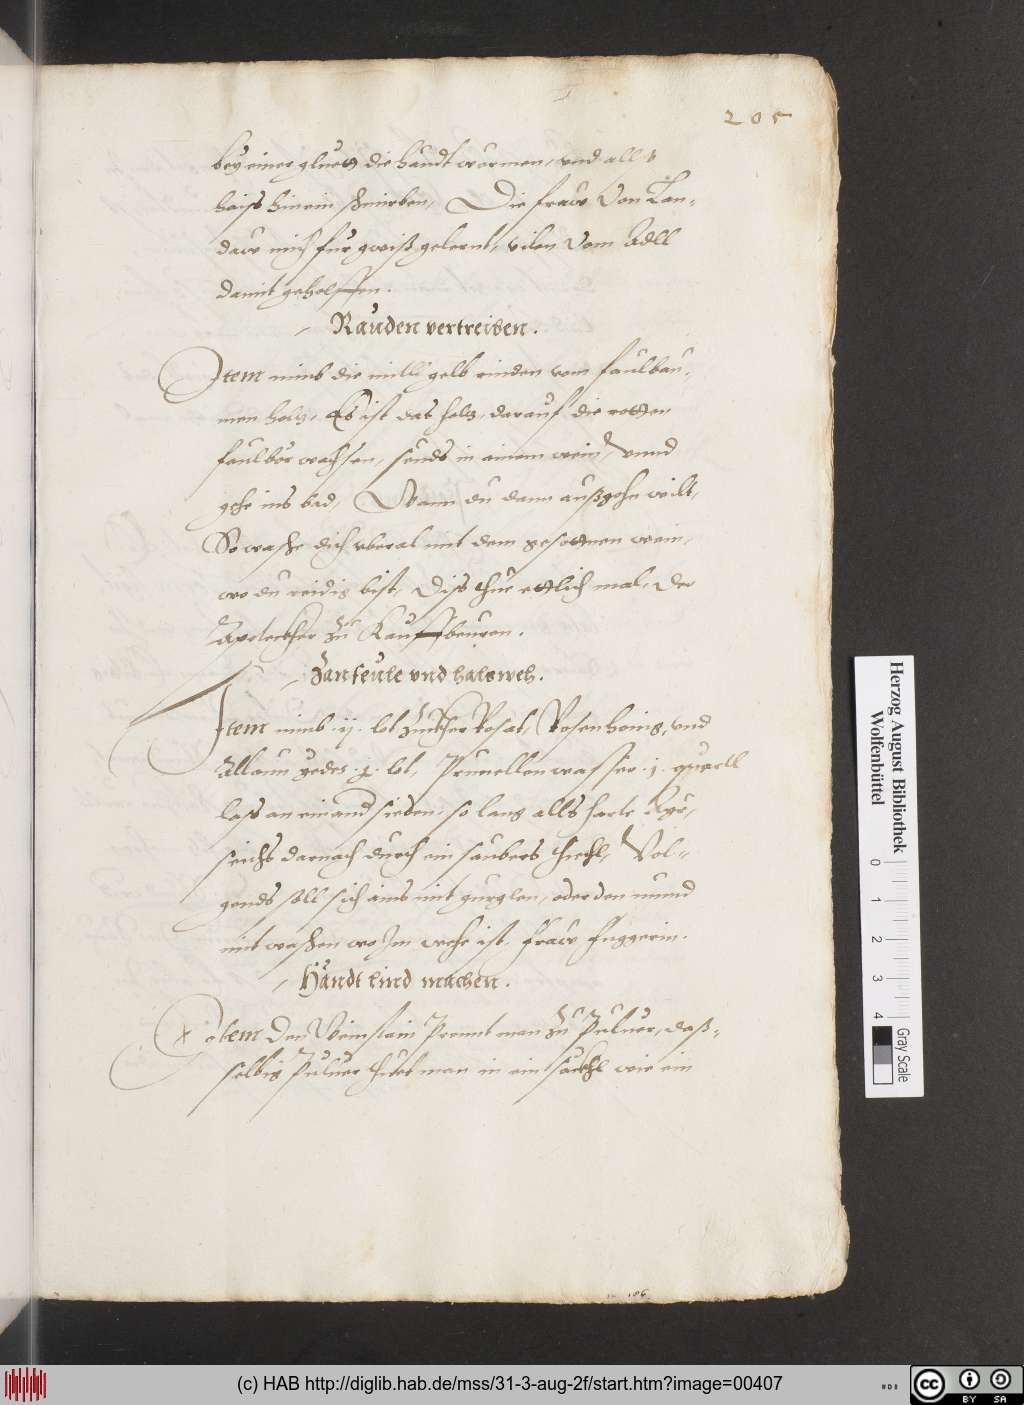 205
bey einer gluett die händt wärmen, vnd alls
haiss hinein schmirben, Die fraw Von Lan-
daw mich für gwiß gelernt, vilen Vom Adll
damit geholffen.
Räuden vertreiben.
Item nimb die mitl gelb rinden vom faulbau-
men holtz, Es ist das holtz, darauf die rotten
faulber wachsen, seuds in einem wein, vnnd
gehe ins bad, Wann du dann außgehn wilt,
So wasche dich vberal mit dem gesottnen wein,
wo du reidig bist, Diss thue ettlich mal, Der
Apoteckher zu Kauffbeuren.
Zanfeule vnd halsweh.
Item nimb .ij. lot Zuckher Rosat, Rosenhonig, vnd
Allaun yedes .j. lot, Prunellenwasser .j. quartl
lass an einand sieden, so lang alls harte Ayr,
seichs darnach durch ein saubers tiechl, Vol-
gends soll sich ains mit gurglen, oder den mund
mit waschen wo Im wehe ist. fraw fuggerin.
Händt lind machen.
Item Den Weinstain Prennt man zu Puluer, dass-
selbig Puluer thuet man in ein säckhl wie ein
106
Herzog August Bibliothek
Wolfenbüttel
0 1 2 3 4
Gray Scale
(c) HAB http://diglib.hab.de/mss/31-3-aug-2f/start.htm?image=00407
cc BY SA